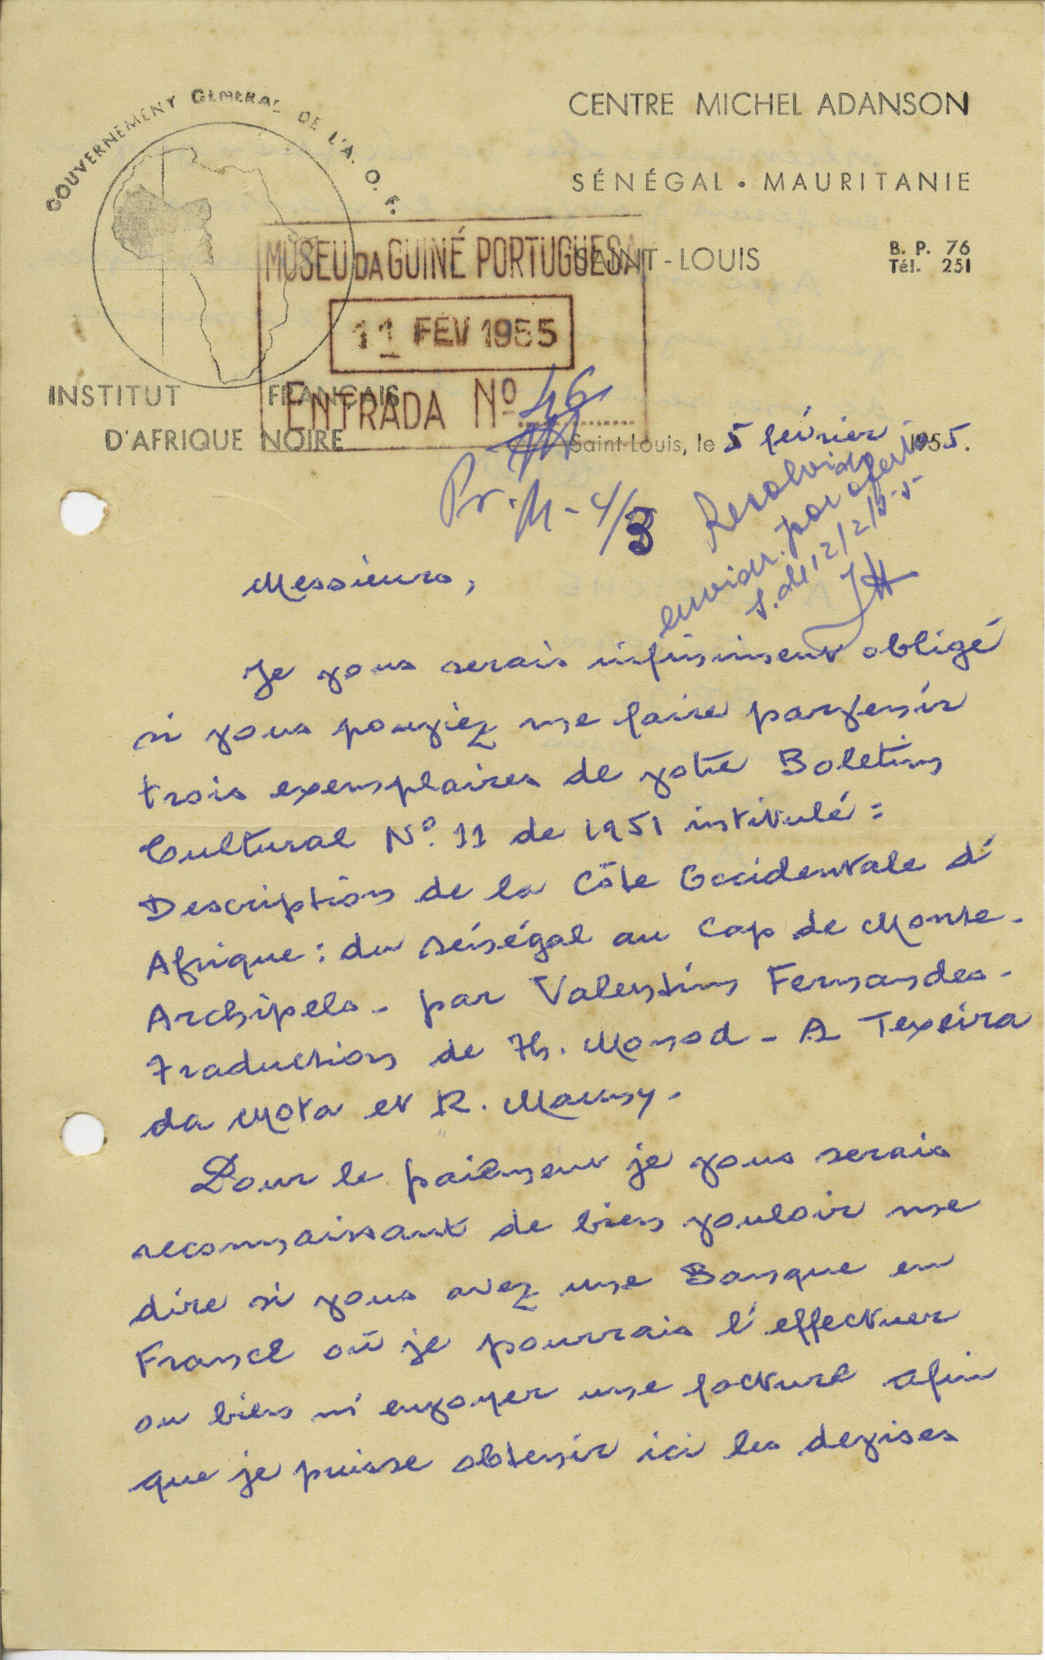 GOUVERNEMENT GÉNÉRAL DE L'A. O. F.
CENTRE MICHEL ADANSON
SÉNÉGAL • MAURITANIE
SAINT-LOUIS
B. P. 76
Tél. 251
MUSEU DA GUINÉ PORTUGUESA
11 FEV 1955
ENTRADA Nº 46
INSTITUT FRANÇAIS
D'AFRIQUE NOIRE
Saint-Louis, le 5 février 1955.
Pr. M - 4/3
Resolvido
enviar por oferta
12/2/55
Messieurs,
Je vous serais infiniment obligé
si vous pouviez me faire parvenir
trois exemplaires de votre Boletim
Cultural Nº. 11 de 1951 intitulé :
Description de la Côte Occidentale d'
Afrique : du Sénégal au Cap de Monte -
Archipels - par Valentim Fernandes -
Traduction de Th. Monod - A Texeira
da Mota et R. Mauny -
Pour le paiement je vous serais
reconnaissant de bien vouloir me
dire si vous avez une Banque en
France où je pourrais l'effectuer
ou bien m'envoyer une facture afin
que je puisse obtenir ici les devises